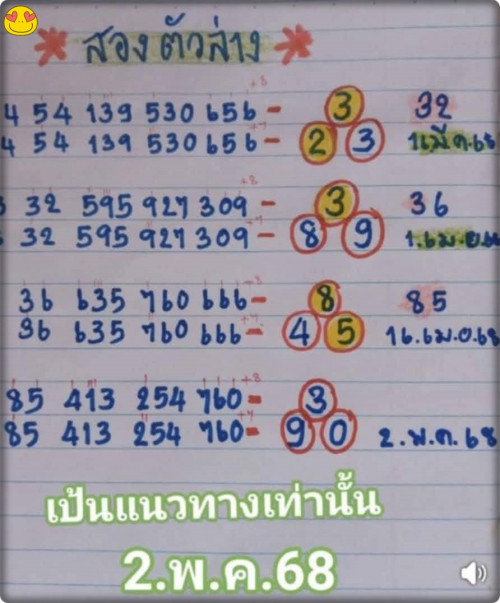 สองตัวล่าง
4 54 139 530 656 - 3 32
4 54 139 530 656 - 2 3
+8
32 595 927 309 - 3 36
+7
32 595 927 309 - 8 9
36 635 760 666 - 8 85
36 635 760 666 - 4 5 16.เม.ย.68
+8
85 413 254 760 - 3
+7
85 413 254 760 - 9 0 2.พ.ค.68
เป็นแนวทางเท่านั้น
2.พ.ค.68